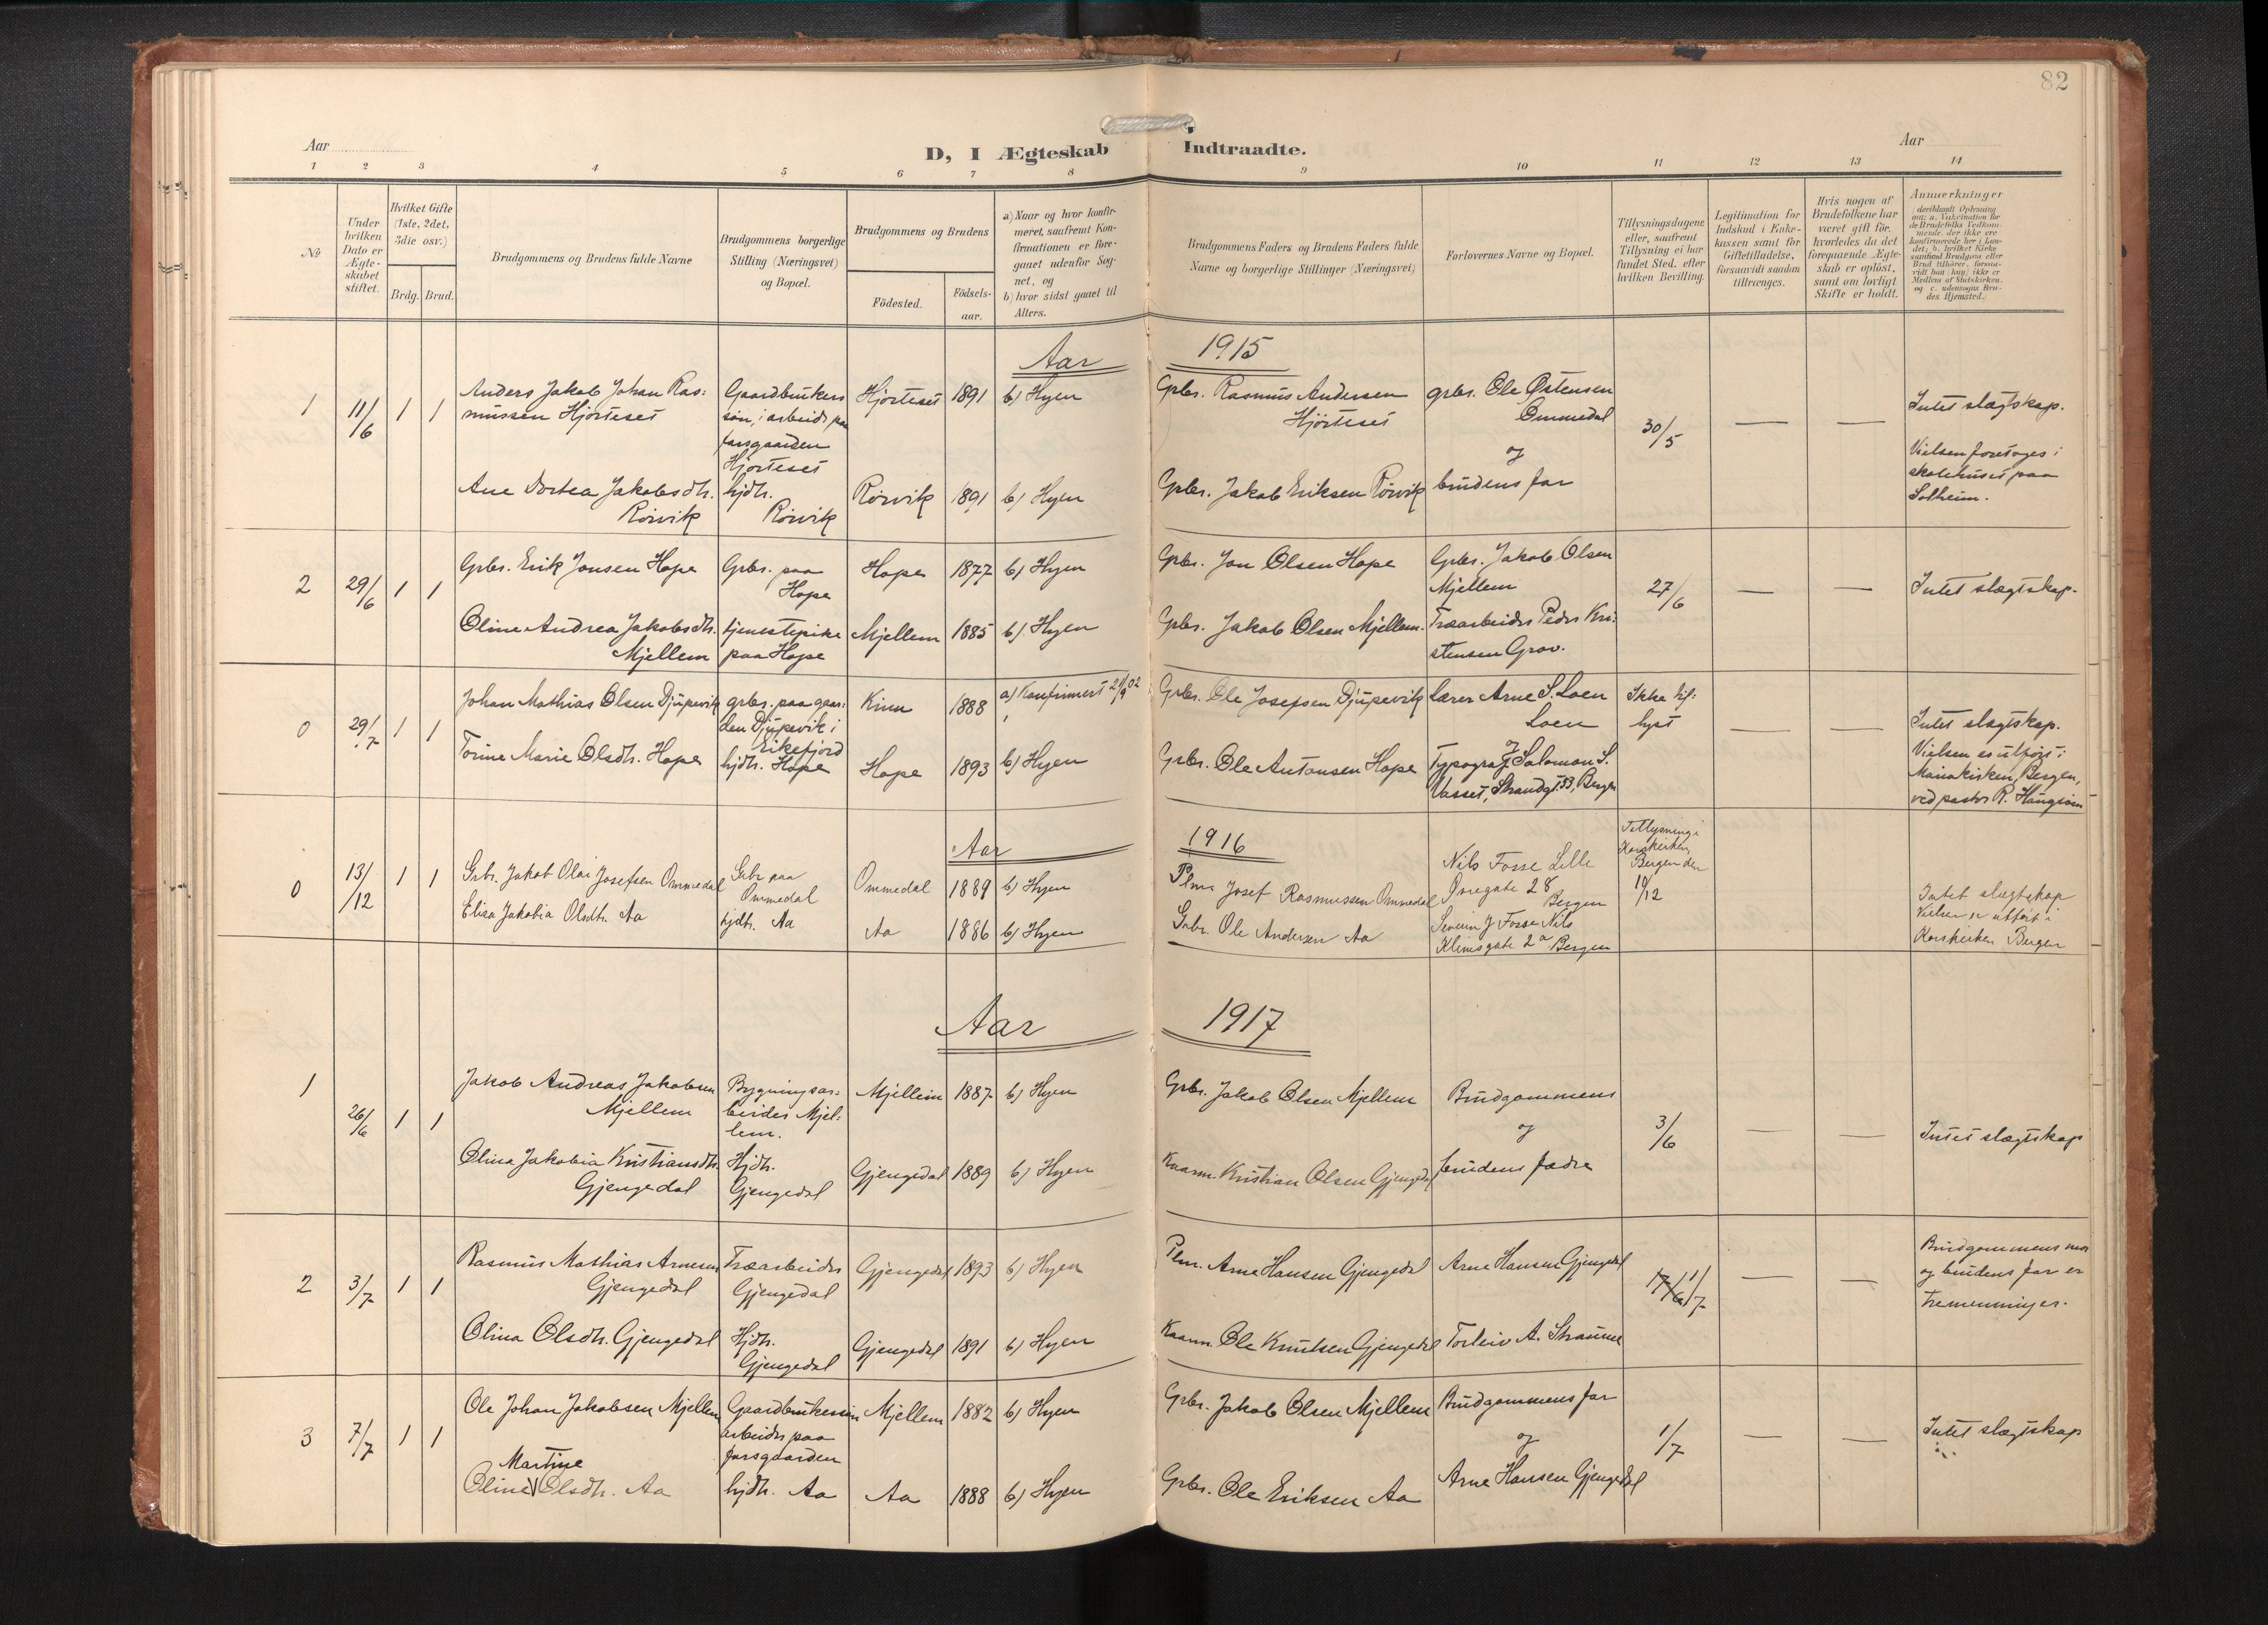 82
Aar
D, I Ægteskab Indtraadte.
Aar
1 2 3 4 5 6 7 8 9 10 11 12 13 14
No
Under hvilken Dato er Ægte-skabet stiftet.
Hvilket Gifte (1ste, 2det, 3die osv.)
Brdg. Brud.
Brudgommens og Brudens fulde Navne
Brudgommens borgerlige Stilling (Næringsvei) og Bopæl.
Brudgommens og Brudens
Födested.
Födsels-aar.
a) Naar og hvor konfir-meret, saafremt Kon-firmationen er fore-gaaet udenfor Sog-net, og
b) hvor sidst gaaet til Alters.
Brudgommens Faders og Brudens Faders fulde Navne og borgerlige Stillinger (Næringsvei)
Forlovernes Navne og Bopæl.
Tillysningsdagene eller, saafremt Tillysning ei har fundet Sted, efter hvilken Bevilling.
Legitimation for Indskud i Enke-kassen samt for Giftetilladelse, forsaavidt saadan tiltrænges.
Hvis nogen af Brudefolkene har været gift för, hvorledes da det foregaaende Ægte-skab er oplöst, samt om lovligt Skifte er holdt.
Anmerkninger
(deriblandt Oplysning om: a. Vakcination for de Brudefolks Vedkom-mende, der ikke ere konfirmerede her i Lan-det; b. hvilket Kirke-samfund Brudgom eller Brud tilhörer, forsaa-vidt han (hun) ikke er Medlem af Statskirken, og c. udensogns Bru-des Hjemsted.)
Aar 1915
1 11/6 1 1
Anders Jakob Johan Ras:
mussen Hjorteset
Gaardbrukers
søn, i arbeide paa
farsgaarden
Hjorteset
Hjorteset 1891 b) Hyen
Grbr. Rasmus Andersen
Hjörteset
grbr. Ole Østensen
Ommedal
og
brudens far
30/5 — —
Intet slægtskap.
Vielsen foretoges i
skolehuset paa
Solheim.
Ane Dortea Jakobsdtr.
Rörvik
hjdtr.
Rörvik
Rörvik 1891 b) Hyen
Grbr. Jakob Eriksen Rörvik
2 29/6 1 1
Grbr. Erik Jonsen Hope
Grbr. paa
Hope
Hope 1877 b) Hyen
Grbr. Jon Olsen Hope
Grbr. Jakob Olsen
Mjellem
27/6 — —
Intet slægtskap.
Oline Andrea Jakobsdtr.
Mjellem
tjenestepike
paa Hope
Mjellem 1885 b) Hyen
Grbr. Jakob Olsen Mjellem.
Træarbeider Peder Kri:
stensen Grov.
0 29/7 1 1
Johan Mathias Olsen Djupevik
grbr. paa gaar:
den Djupevik i
Eikefjord
Kinn 1888 a) Konfirmert 21/9 02
Grbr. Ole Josefsen Djupevik
Lærer Arne S. Loen
Loen
Ikke lyst
— —
Intet slægtskap.
Vielsen er utført i
Mariakirken, Bergen,
ved pastor R.
Torine Marie Olsdtr. Hope
hjdtr. Hope
Hope 1893 b) Hyen
Grbr. Ole Antonsen Hope
Typograf Salomon S.
Vasset, Strandgt. 53, Bergen
Aar 1916
0 13/12 1 1
Grbr. Jakob Olai Josefsen Ommedal
Grbr paa
Ommedal
Ommedal 1889 b) Hyen
Plm. Josef Rasmussen Ommedal
Nils Fosse Lille
Øvregate 28
Bergen
Tillysning i
Korskirken,
Bergen den
10/12
Intet slægtskap
Vielsen er utført i
Korskirken Bergen
Elisa Jakobia Olsdtr. Aa
hjdtr. Aa
Aa 1886 b) Hyen
Grbr. Ole Andersen Aa
Severin J Fosse Nils
Klimsgate 2a Bergen
Aar 1917
1 26/6 1 1
Jakob Andreas Jakobsen
Mjellem
Bygningsar:
beider Mjel:
lem.
Mjellem 1887 b) Hyen
Grbr. Jakob Olsen Mjellem
Brudgommens
og
brudens fædre
3/6 — —
Intet slægtskap
Olina Jakobia Kristiansdtr.
Gjengedal
Hjdtr.
Gjengedal
Gjengedal 1889 b) Hyen
Kaarm. Kristian Olsen Gjengedal
2 3/7 1 1
Rasmus Mathias Arnesen
Gjengedal
Træarbeider
Gjengedal
Gjengedal 1893 b) Hyen
Plm. Arne Hansen Gjengedal
Arne Hansen Gjengedal
17/6 1/7 — —
Brudgommens mor
og brudens far er
tremenninger.
Olina Olsdtr. Gjengedal
Hjdtr.
Gjengedal
Gjengedal 1891 b) Hyen
Kaarm. Ole Knutsen Gjengedal
Torleiv A. Straume
3 7/7 1 1
Ole Johan Jakobsen Mjellem
Gaardbrukersøn
arbeider paa
farsgaarden
Mjellem 1882 b) Hyen
Grbr. Jakob Olsen Mjellem
Brudgommens far
og
Arne Hansen Gjengedal
1/7 — —
Intet slægtskap
Martine
Oline Olsdtr. Aa
hjdtr. Aa
Aa 1888 b) Hyen
Grbr. Ole Eriksen Aa